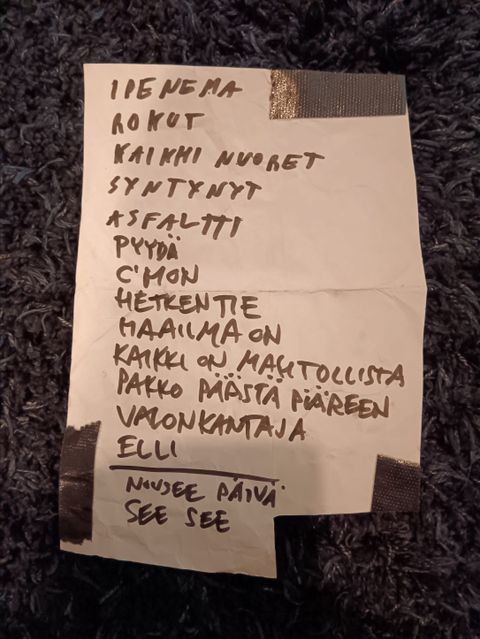 IPENEMA
ROKUT
KAIKKI NUORET
SYNTYNYT
ASFALTTI
PYYDÄ
C'MON
HETKENTIE
MAAILMA ON
KAIKKI ON MAHTOLLISTA
PAKKO PÄÄSTÄ PIÄREEN
VALONKANTAJA
ELLI
NOUSEE PÄIVÄ
SEE SEE